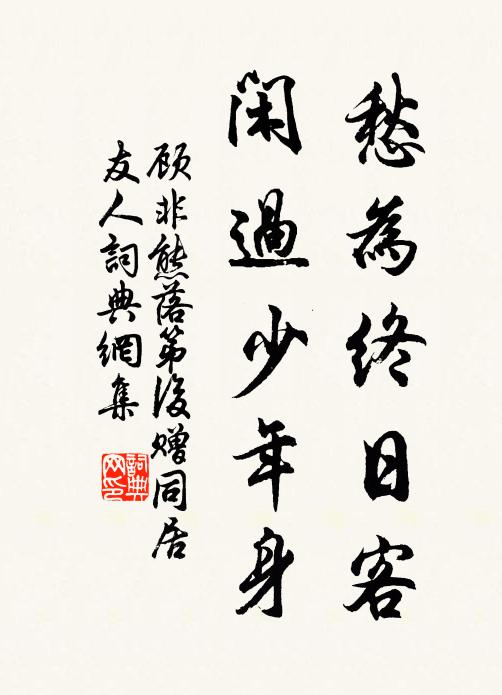 愁為終日客
閑過少年身
顾非熊落第後贈同居
友人詞典網集
詞典网印